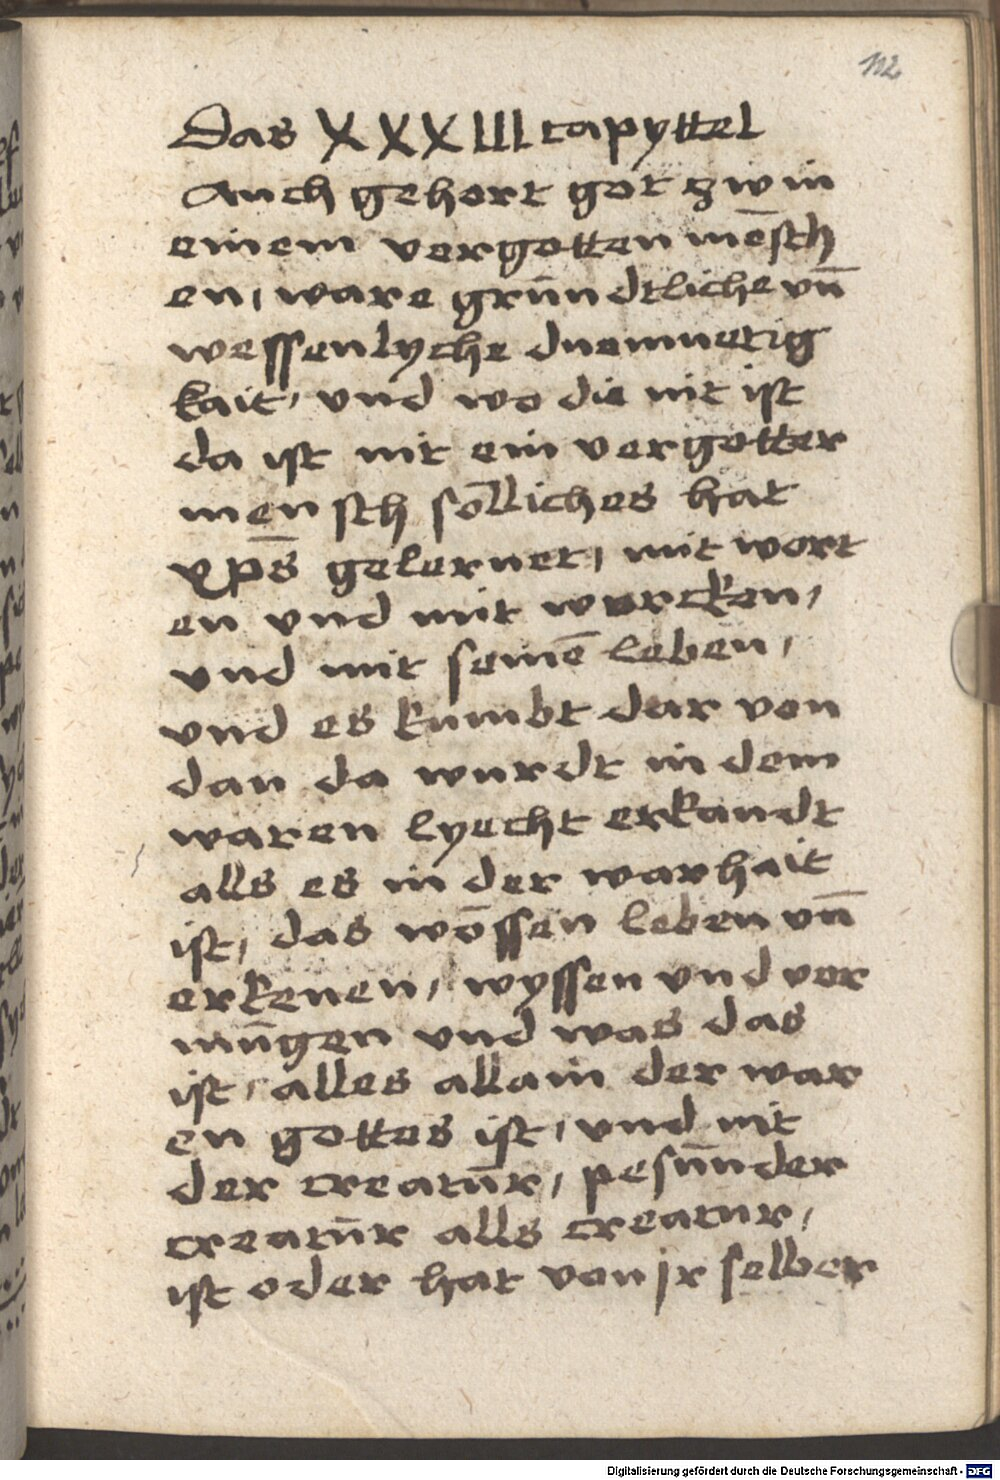 112
Das XXXIII capyttel
Auch gehort got zw in
einem vergotten mēsch
en, ware grūndtliche vn̄
wessenlyche duemuetig
kait, vnd wo die nit ist
da ist nit ein vergotter
mensch solliches hat
xp̄s gelernet, mit wort
en vnd mit wercken,
vnd mit seinē leben,
vnd es kumbt dar von
dan da wurdt in dem
waren lyecht erkandt
alls es in der warhait
ist, das wössen leben vn̄
erkenen, wyssen vnd ver
mūgen vnd was das
ist, alles allain der war
en gottes ist, vnd nit
der creatūr, pesūnder
creatūr alls creatur,
ist oder hat von jr selber
Digitalisierung gefördert durch die Deutsche Forschungsgemeinschaft - DFG